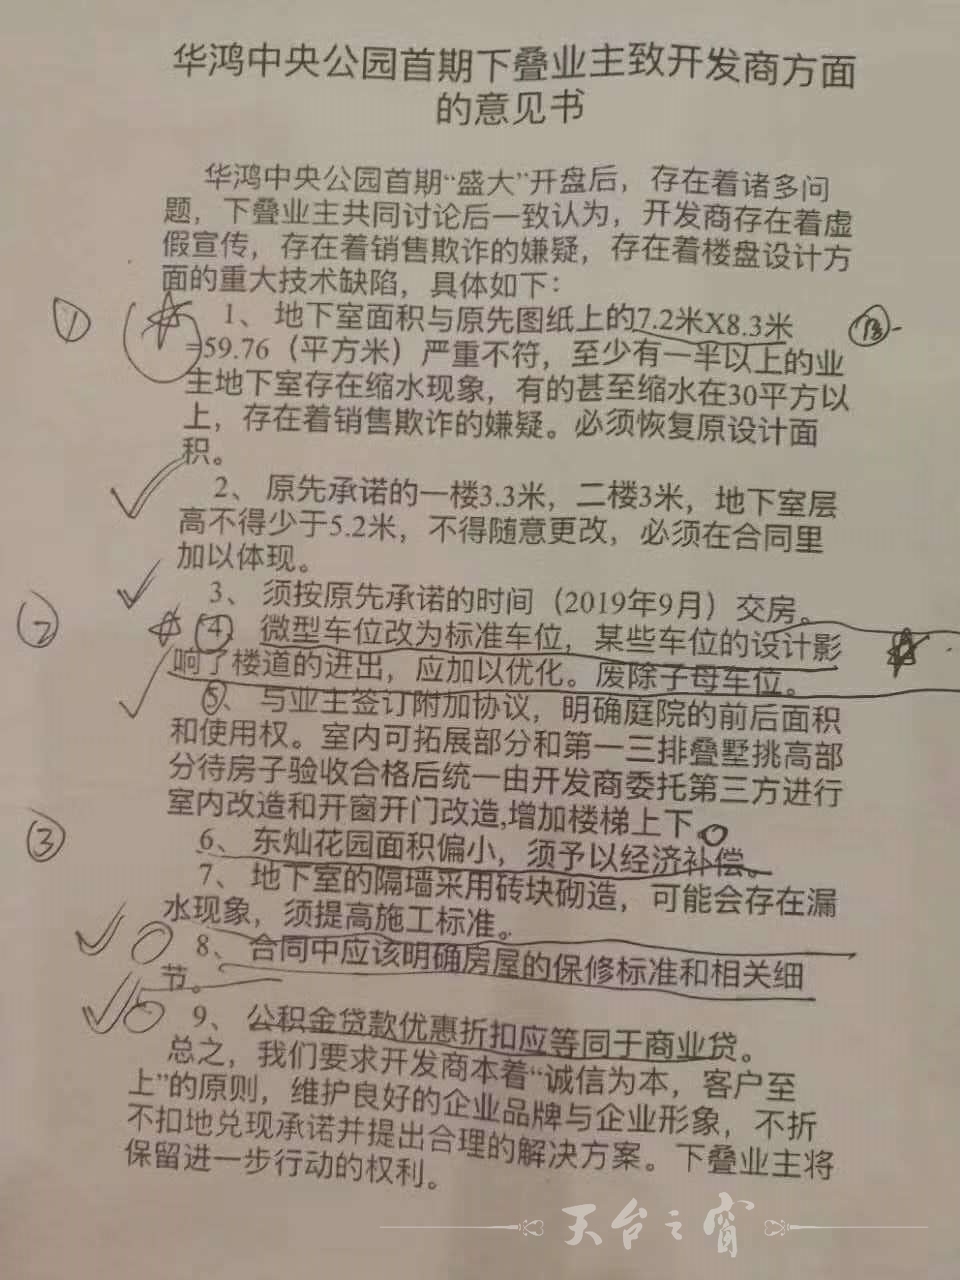 华鸿中央公园首期下叠业主致开发商方面
的意见书
华鸿中央公园首期“盛大”开盘后，存在着诸多问
题，下叠业主共同讨论后一致认为，开发商存在着虚
假宣传，存在着销售欺诈的嫌疑，存在着楼盘设计方
面的重大技术缺陷，具体如下：
① 1、地下室面积与原先图纸上的7.2米X8.3米
=59.76（平方米）严重不符，至少有一半以上的业
主地下室存在缩水现象，有的甚至缩水在30平方以
上，存在着销售欺诈的嫌疑。必须恢复原设计面
积。
2、原先承诺的一楼3.3米，二楼3米，地下室层
高不得少于5.2米，不得随意更改，必须在合同里
加以体现。
3、须按原先承诺的时间（2019年9月）交房。
② 4、微型车位改为标准车位，某些车位的设计影
响了楼道的进出，应加以优化。废除子母车位。
5、与业主签订附加协议，明确庭院的前后面积
和使用权。室内可拓展部分和第一三排叠墅挑高部
分待房子验收合格后统一由开发商委托第三方进行
室内改造和开窗开门改造,增加楼梯上下。
③ 6、东灿花园面积偏小，须予以经济补偿。
7、地下室的隔墙采用砖块砌造，可能会存在漏
水现象，须提高施工标准。
8、合同中应该明确房屋的保修标准和相关细
节。
9、公积金贷款优惠折扣应等同于商业贷。
总之，我们要求开发商本着“诚信为本，客户至
上”的原则，维护良好的企业品牌与企业形象，不折
不扣地兑现承诺并提出合理的解决方案。下叠业主将
保留进一步行动的权利。
天台之窗